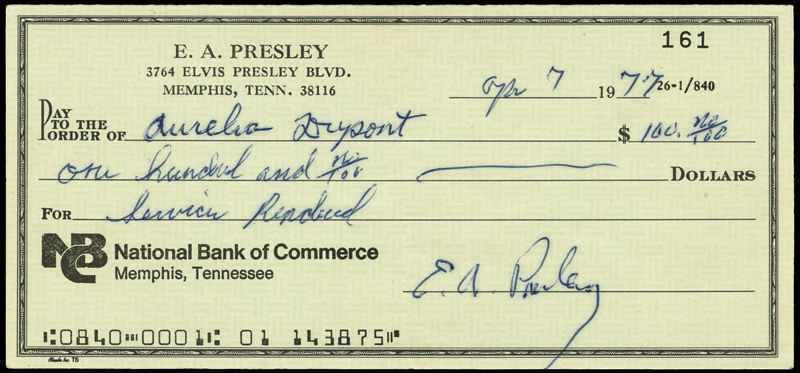 161
E. A. PRESLEY
3764 ELVIS PRESLEY BLVD.
MEMPHIS, TENN. 38116
Apr 7 1977 26-1/840
PAY TO THE ORDER OF Aurelia Dupont $ 100. no/100
one hundred and no/100 DOLLARS
FOR Services Rendered
NBC National Bank of Commerce
Memphis, Tennessee
E. A. Presley
⑆0840⑉0001⑆ 01 143875⑈